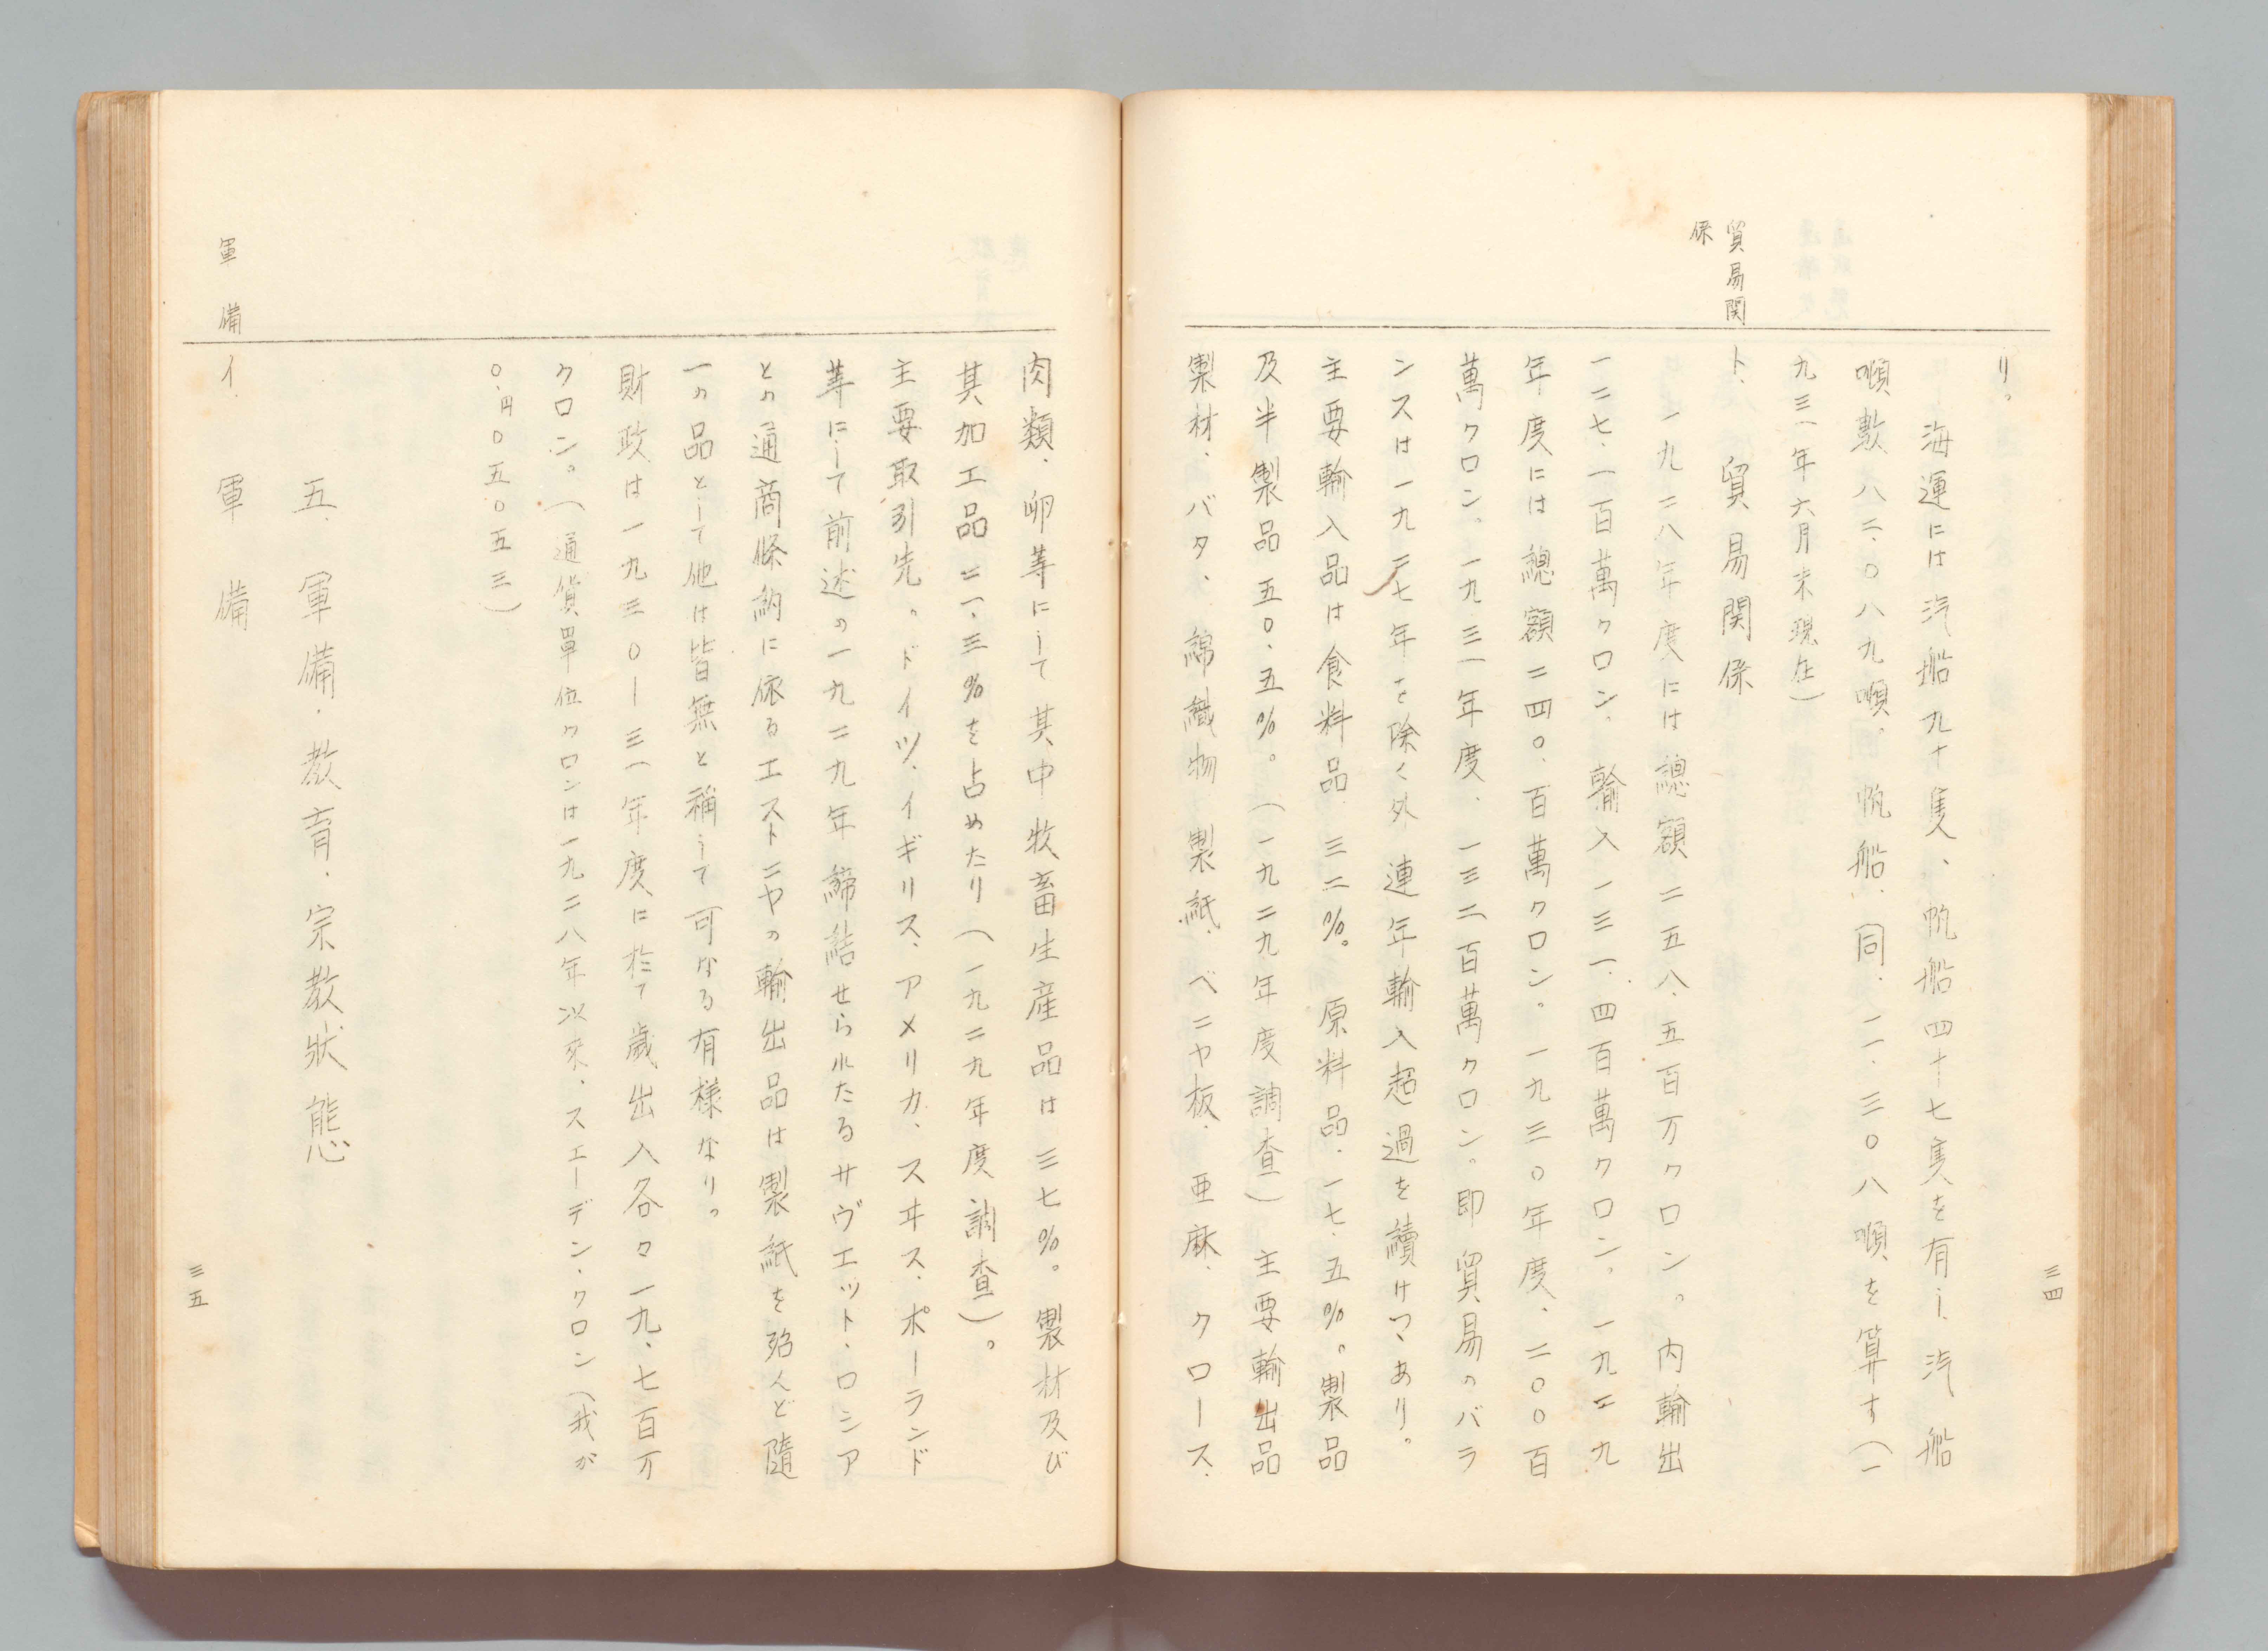 三四
貿易関
係
り。
海運には汽船九十隻、帆船四十七隻を有し、汽船
噸數八二、〇八九噸、帆船、同、一一、三〇八噸を算す（一
九三一年六月末現在）
ト、貿易関係
一九二八年度には總額二五八、五百万クロン。内輸出
一二七、一百萬クロン、輸入一三一、四百萬クロン。一九二九
年度には總額二四〇、百萬クロン。一九三〇年度、二〇〇百
萬クロン。一九三一年度、一三二百萬クロン。即貿易のバラ
ンスは一九二七年を除く外連年輸入超過を續けつゝあり。
主要輸入品は食料品、三二％。原料品、一七、五％。製品
及半製品五〇、五％。（一九二九年度調査）主要輸出品
製材、バタ、綿織物、製紙、ベニヤ板、亜麻、クロース、
肉類、卵等にして其中牧畜生産品は三七％。製材及び
其加工品二一、三％を占めたり（一九二九年度調査）。
主要取引先。ドイツ、イギリス、アメリカ、スヰス、ポーランド
等にして前述の一九二九年締結せられたるサヴエット、ロシア
との通商條約に依るエストニヤの輸出品は製紙を殆んど隨
一の品として他は皆無と稱して可なる有様なり。
財政は一九三〇ー三一年度に於て歳出入各々一九、七百万
クロン。（通貨單位クロンは一九二八年以來、スエーデン、クロン（我が
〇.円〇五〇五三）
五、軍備、教育、宗教狀態
軍備
イ、軍備
三五